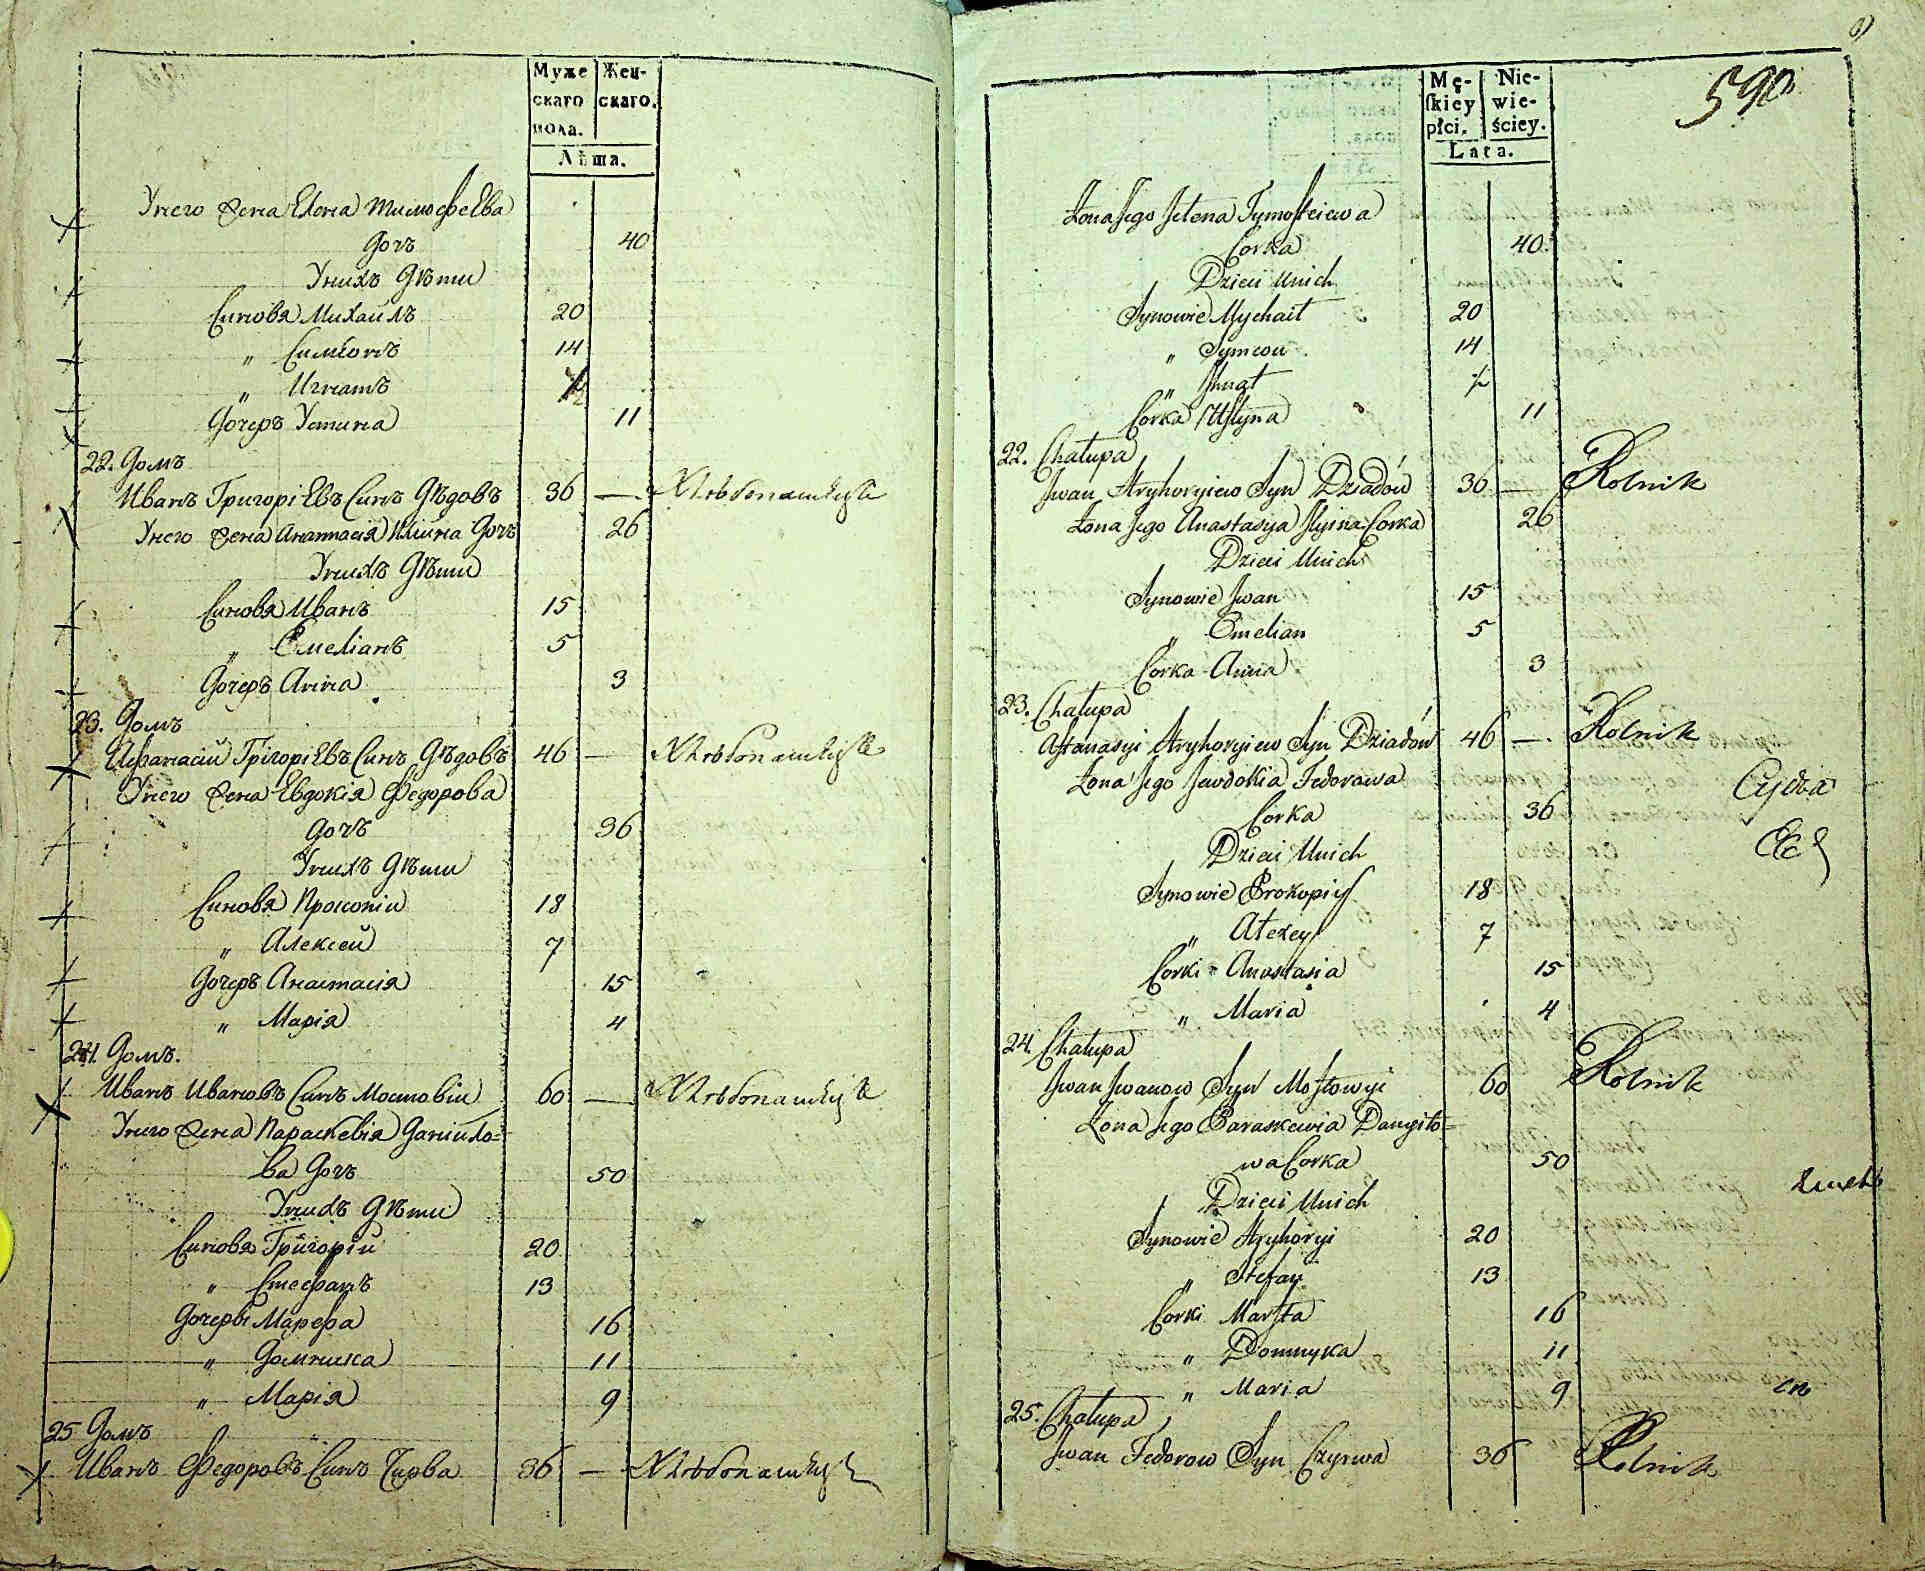 Муже Жен-
скаго скаго.
пола.
Лѣта.
Унего Жена Елена Тимофеева
Дочъ 40
Унихъ Дѣти
Синовя Михаилъ 20
„ Симионъ 14
„ Игнатъ ½
Дочеръ Устина 11
22. Домъ
Иванъ Григоріевъ Синъ Дѣдовъ 36 — Хлѣбопашецъ
Унего Жена Анастасія Илiина Дочъ 26
Унихъ Дѣти
Синовя Иванъ 15
„ Емелiанъ 5
Дочеръ Анна 3
23. Домъ
Афанасiй Григоріевъ Синъ Дѣдовъ 46 — Хлѣбопашецъ
Унего Жена Евдокія Федорова
Дочъ 36
Унихъ Дѣти
Синовя Прокопiи 18
„ Алексей 7
Дочеръ Анастасiя 15
„ Марiя 4
24. Домъ.
Иванъ Ивановъ Синъ Мостовiи 60 — Хлѣбопашецъ
Унего Жена Параскевiя Данiило=
ва Дочъ 50
Унихъ Дѣти
Синовя Григорiи 20
„ Стефанъ 13
Дочеры Марѳа 16
„ Домника 11
„ Марiя 9
25 Домъ
Иванъ Федоровъ Синъ Чирва 36 — Хлѣбопашецъ
590
Mę- Nie-
ſkiey wie-
płci. ściey.
Lata.
Żona Jego Jełena Tymofteiewa
Corka 40
Dzieci Unich
Synowie Mychaił 20
„ Symeon 14
„ Jhnat ½
Corka Uſtyna 11
22. Chałupa
Jwan Hryhoryiew Syn Dziadów 36 — Rolnik
Żona Jego Anastasya Jlyina Corka 26
Dzieci Unich
Synowie Jwan 15
„ Emelian 5
Corka Anna 3
23. Chałupa
Aftanasyi Hryhoryiew Syn Dziadów 46 — Rolnik
Żona Jego Jewdokia Fedorowa
Corka 36
Dzieci Unich
Synowie Prokopiy 18
„ Alexey 7
Corki Anastasia 15
„ Maria 4
24. Chałupa
Jwan Jwanow Syn Moſtowyi 60 Rolnik
Żona Jego Paraskewia Danyło=
wa Corka 50
Dzieci Unich
Synowie Hryhoryi 20
„ Stefan 13
Corki Marfta 16
„ Domnyka 11
„ Maria 9
25. Chałupa
Jwan Fedorow Syn Czyrwa 36 Rolnik